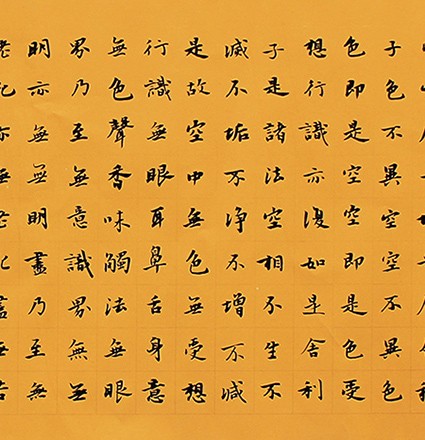 子色不異空空不異色
色即是空空即是色受
想行識亦復如是舍利
子是諸法空相不生不
滅不垢不淨不增不減
是故空中無色無受想
行識無眼耳鼻舌身意
無色聲香味觸法無眼
界乃至無意識界無無
明亦無無明盡乃至無